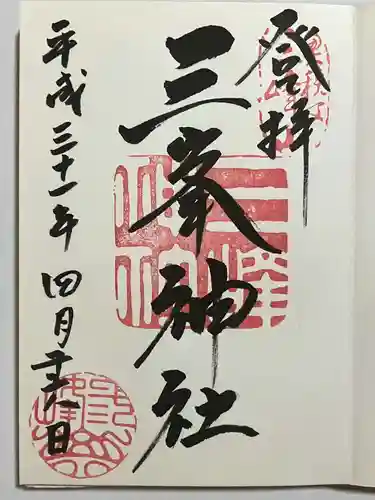 登拝
三峯神社
平成三十一年四月十六日